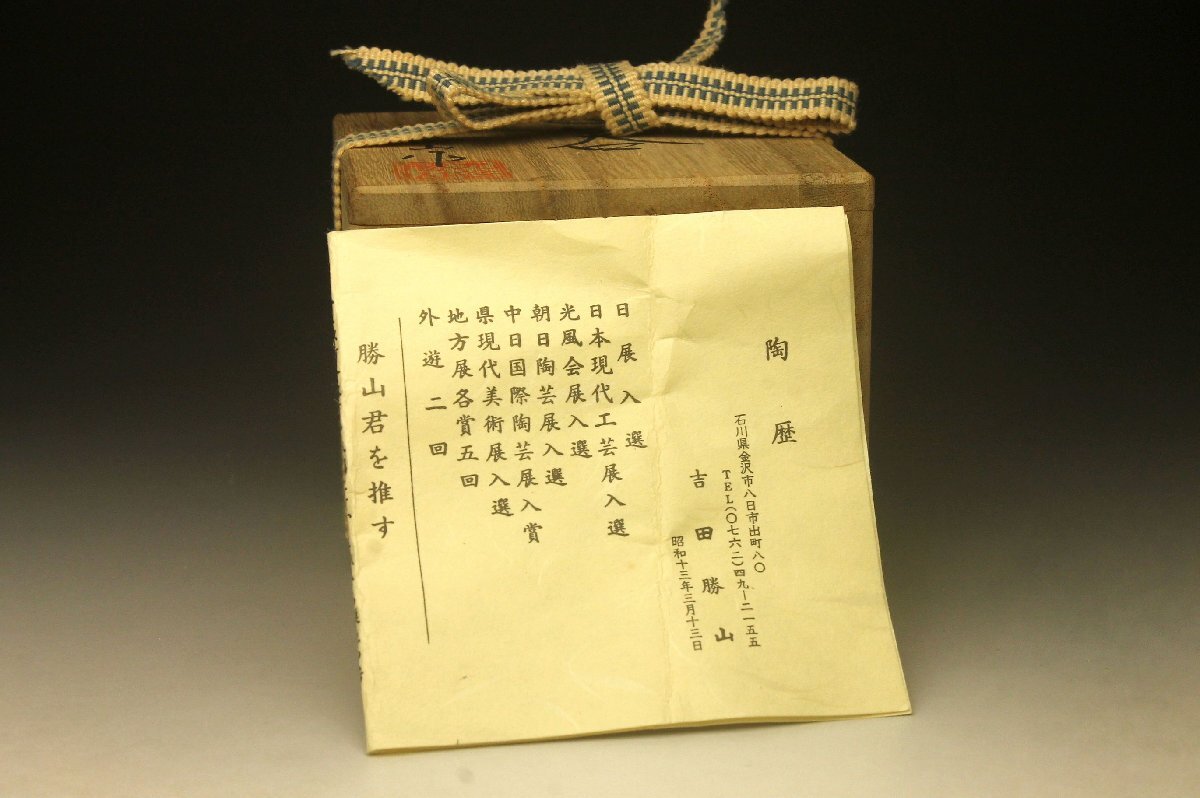 陶歴
石川県金沢市八日市出町八〇
TEL(〇七六二)四九ー二一五五
吉田勝山
昭和十三年三月十三日
日展入選
日本現代工芸展入選
光風会展入選
朝日陶芸展入選
中日国際陶芸展入賞
県現代美術展入選
地方展各賞五回
外遊二回
勝山君を推す